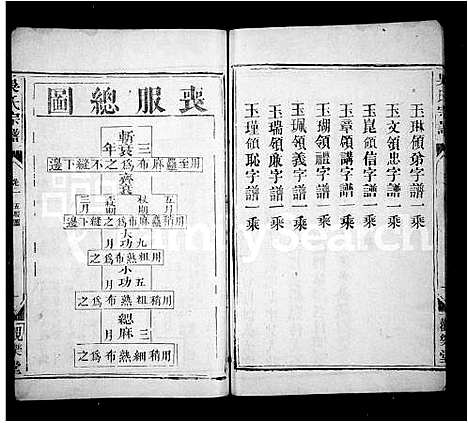 玉琳領弟字譜一乘
玉文領忠字譜一乘
玉崑領信字譜一乘
玉章領講字譜一乘
玉瑚領禮字譜一乘
玉珮領義字譜一乘
玉瑞領廉字譜一乘
玉瑾領恥字譜一乘
喪服總圖
斬衰
三年
用至麤麻布為之不縫下邊
齊衰
五月
杖期
不杖期
三月
用稍麤麻布為之縫下邊
大功
九月
用粗熟布為之
小功
五月
用稍粗熟布為之
緦麻
三月
用稍細熟布為之
吳氏宗譜
觀樂堂
FamilySearch